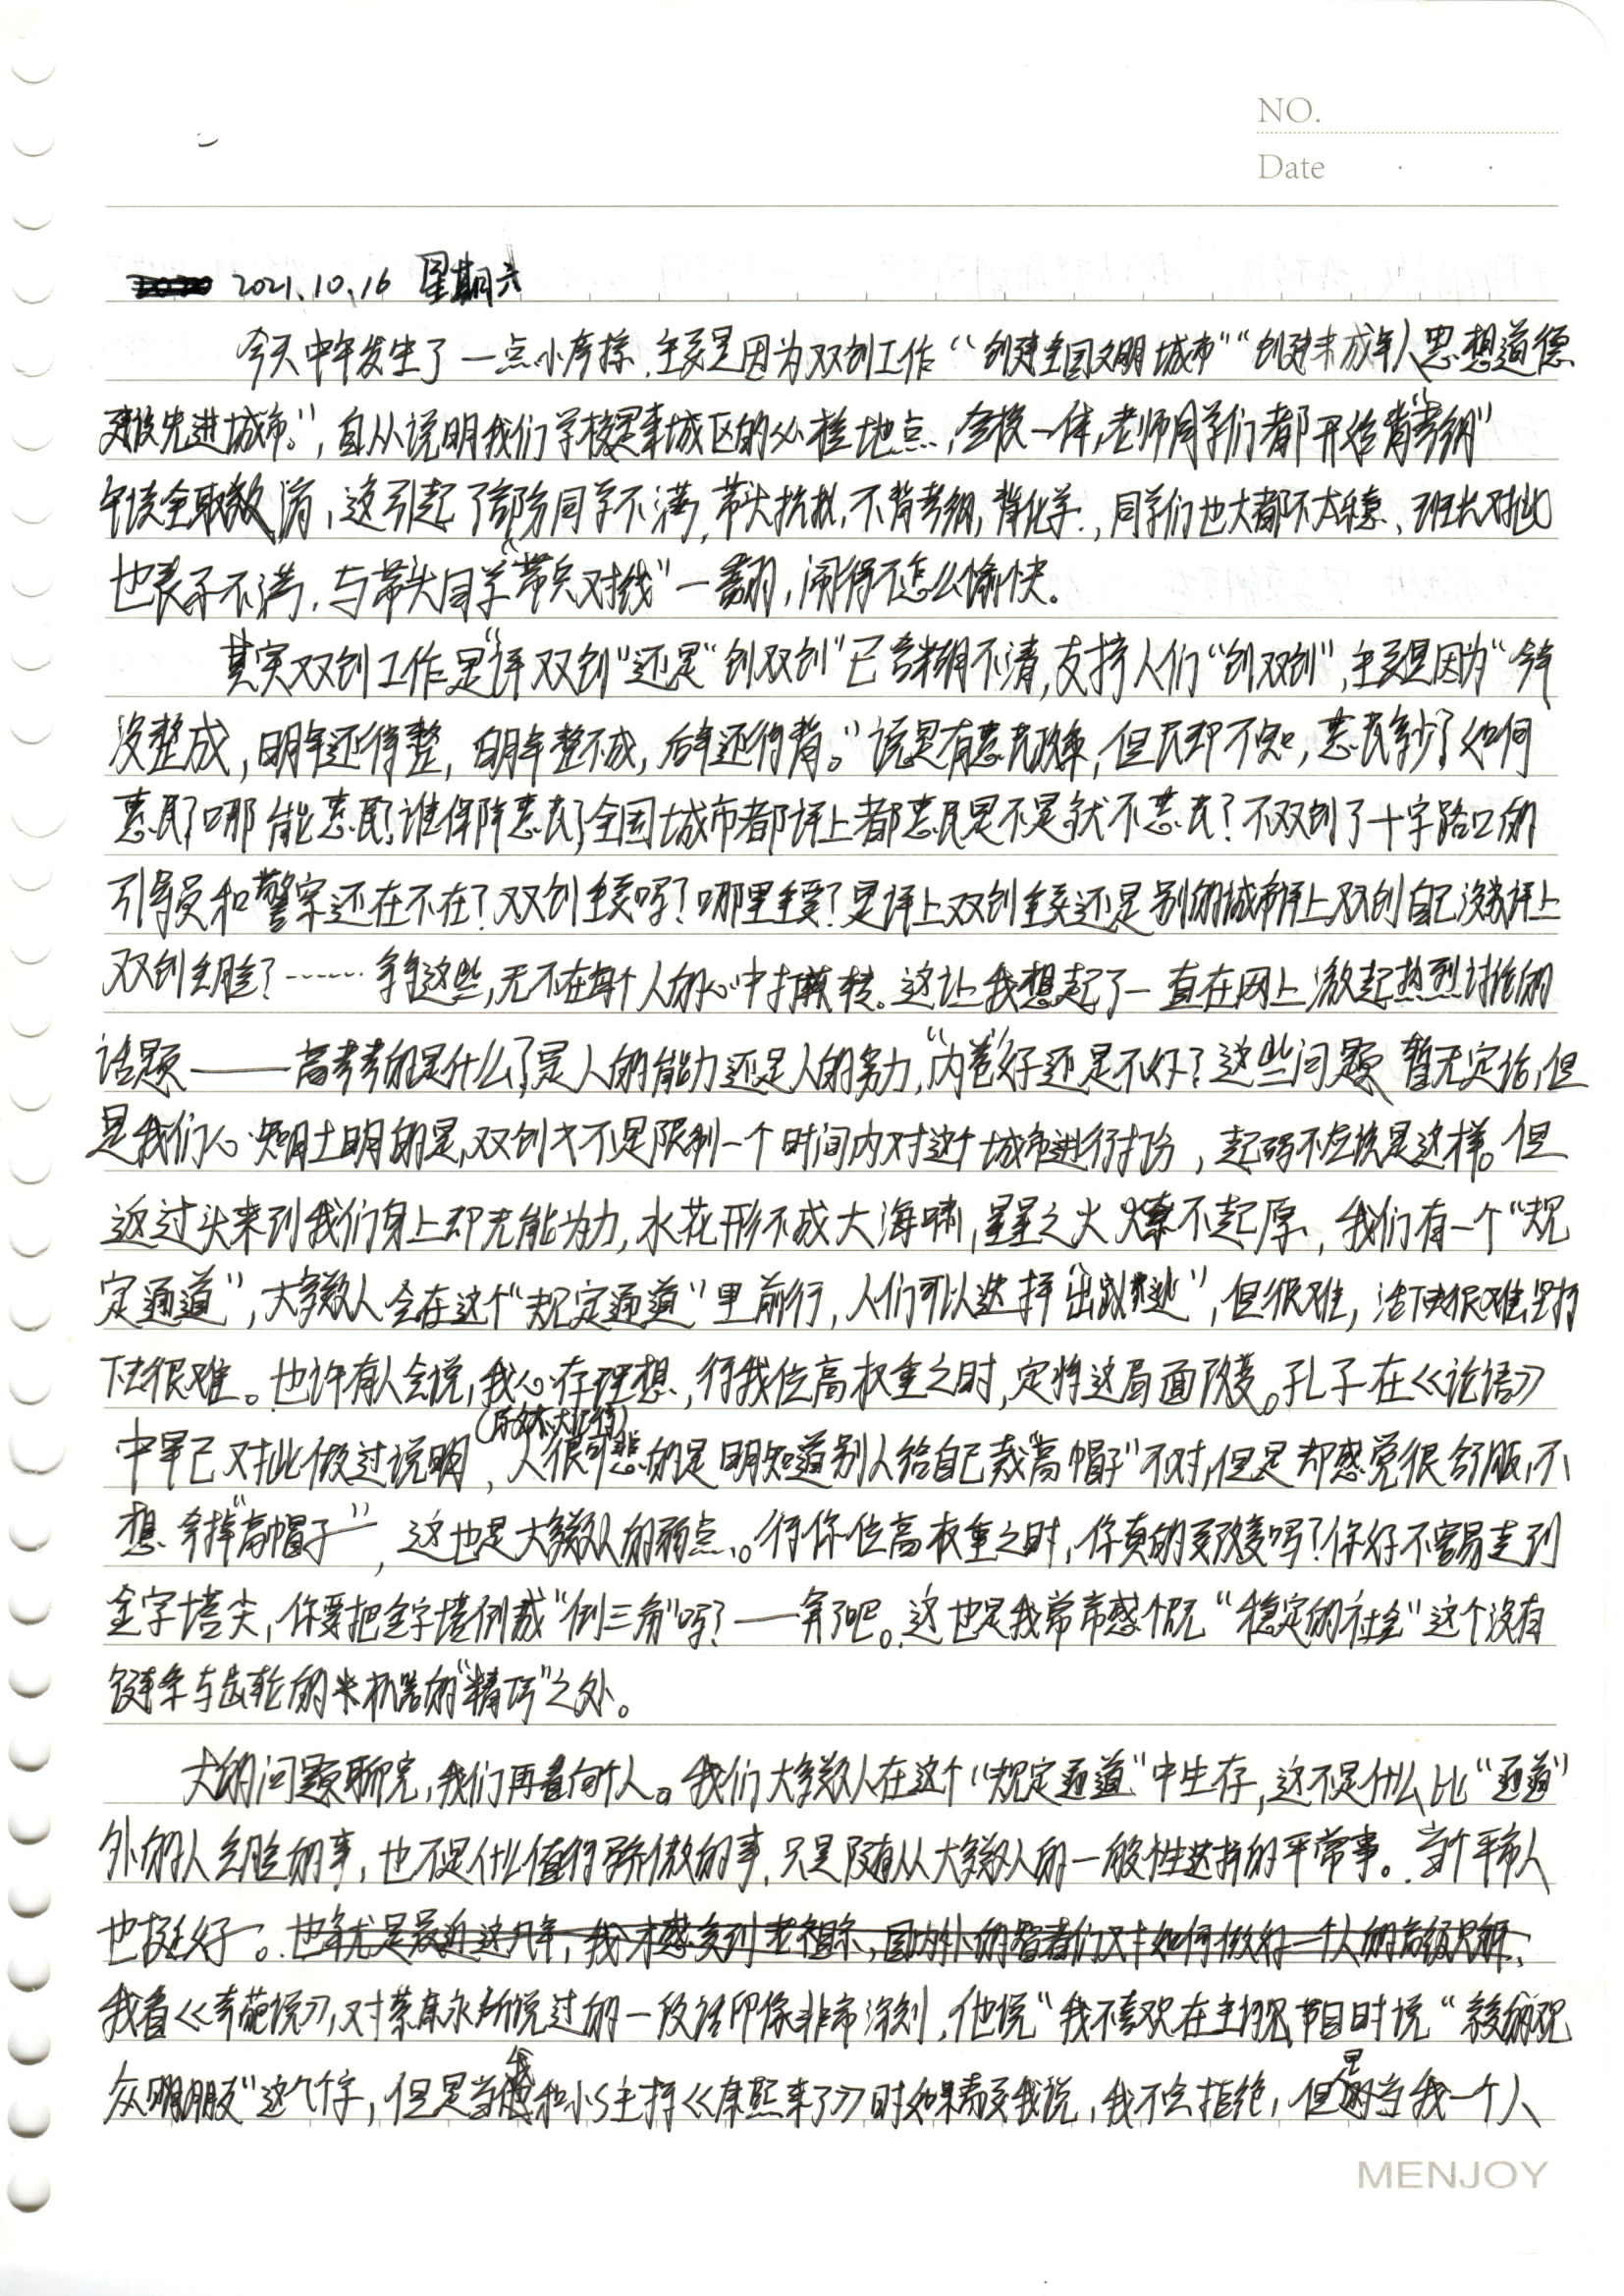 NO.
Date
2021.10.16 星期六
今天中午发生了一点小摩擦,主要是因为双创工作“创建全国文明城市”“创建未成年人思想道德
建设先进城市。”,自从说明我们学校是本城区的必检地点,全校一体,老师同学们都开始背“考纲”
午读全取消,这引起了部分同学不满,带头抗拟,不背考纲,背化学.,同学们也大都不太乐意、班长对此
也表示不满,与带头同学“带兵对线”一翻,闹得不怎么愉快。
其实双创工作是“评双创”还是“创双创”已含糊不清,支持人们“创双创”,主要是因为“今年
没整成,明年还得整,明年整不成,后年还得背。”说是有惠民政策,但民却不知,惠民多少?如何
惠民?哪能惠民?谁保障惠民?全国城市都评上都惠民是不是就不惠民?不双创了十字路口的
引导员和警察还在不在?双创重要吗?哪里重要?是评上双创重要还是别的城市评上双创自己没评上
双创丢脸?……等等这些,无不在每个人的心中打转。这让我想起了一直在网上激起热烈讨论的
话题——高考考的是什么?是人的能力还是人的努力,“内卷”好还是不好?这些问题暂无定论,但
是我们心知肚明的是,双创才不是限制一个时间内对这个城市进行打扮,起码不应该是这样。但
返过头来到我们身上却无能为力,水花形不成大海啸,星星之火燎不起原,我们有一个“规
定通道”,大多数人会在这个“规定通道”里前行,人们可以选择“出逃”,但很难,活下去很难,坚持
下去很难。也许有人会说,我心存理想,待我位高权重之时,定将这局面改变。孔子在《论语》
中早已对此做过说明,人很可悲的是明知道别人给自己戴“高帽子”不对,但是却感觉很舒服,不
想弄掉“高帽子”,这也是大多数人的弱点。待你位高权重之时,你真的要改变吗?你好不容易走到
金字塔尖,你要把金字塔倒成“倒三角”吗?——算了吧。这也是我常常感慨“稳定的社会”这个没有
链条与齿轮的机器的“精巧”之处。
大的问题聊完,我们再看向个人。我们大多数人在这个“规定通道”中生存,这不是什么比“通道”
外的人丢脸的事,也不是什么值得骄傲的事,只是随着大多数人的一般性选择的平常事。当个平常人
也挺好。也就是最近这几年,我才感受到老祖宗,国内外的智者们对如何做好一个人的高级见解,
我看《奇葩说》,对蔡康永所说过的一段话印像非常深刻,他说“我不喜欢在主持节目时说“亲爱的观
众朋友”这个字,但是当我和小S主持《康熙来了》时如果需要我说,我不会拒绝,但是当我一个人
MENJOY